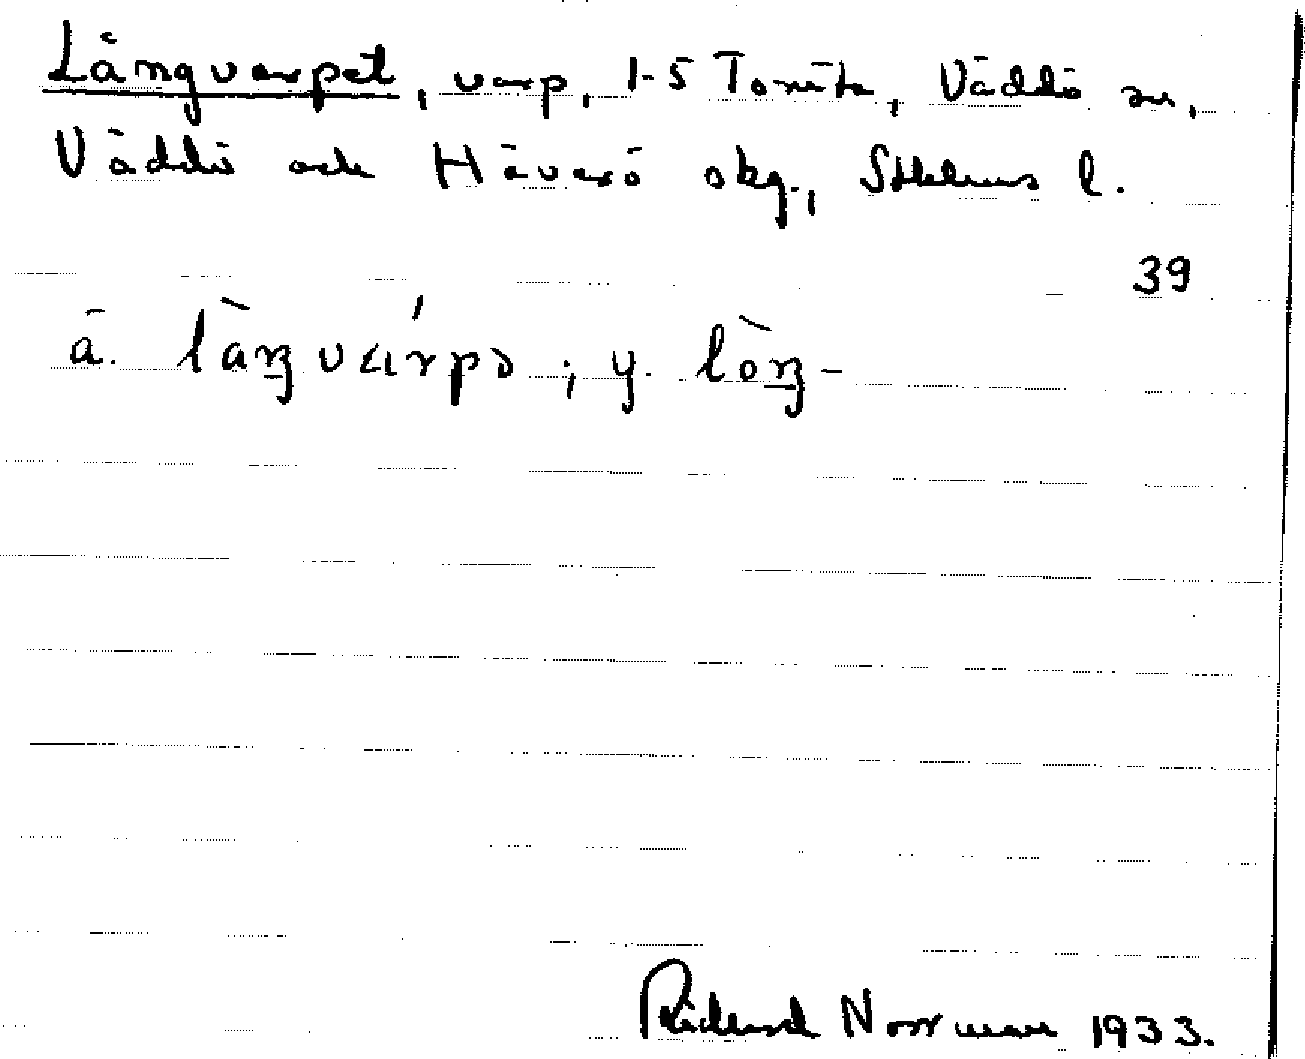 Långvarpet, varp, 1-5 Tomta, Väddö sn,
Väddö och Häverö skg., Sthlms l.
39
ä. làŋvárpə ; y. lòŋ-
Rickard Norrman 1933.